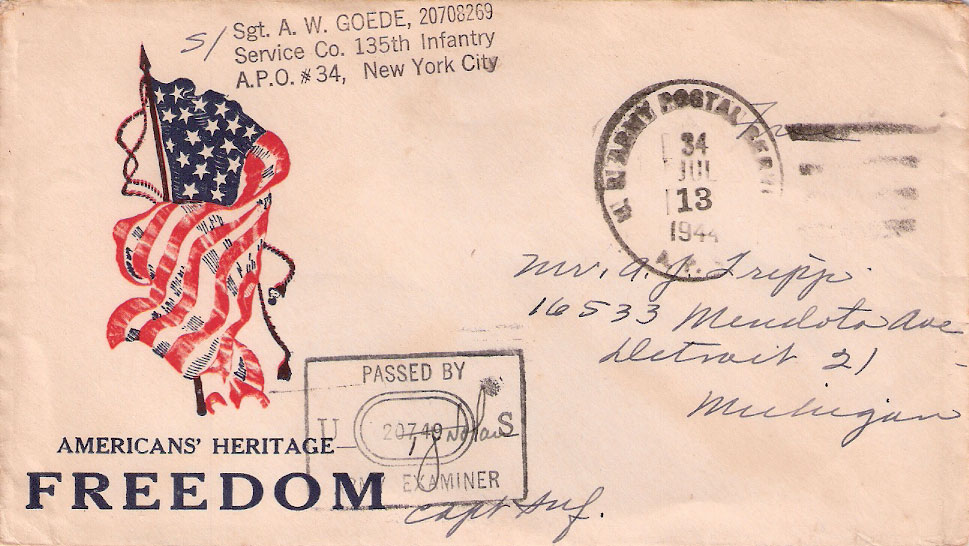 S/ Sgt. A. W. GOEDE, 20708269
Service Co. 135th Infantry
A.P.O. #34, New York City
Free
U.S. ARMY POSTAL SERV
34
JUL
13
1944
A.P.
Mr. A. J. Tripp
16533 Mendota Ave
Detroit 21
Michigan
PASSED BY
U 20749 S
ARMY EXAMINER
Capt Inf.
AMERICANS' HERITAGE
FREEDOM